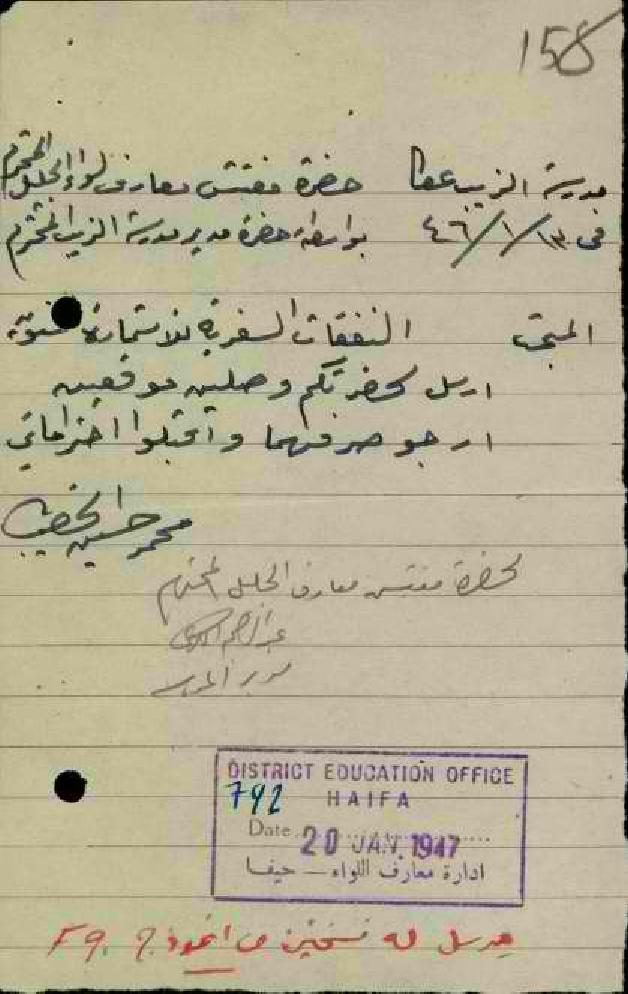 158
مدرسة الزيب عكا حضرة مفتش معارف لواء الجليل المحترم
في ١٣/١/٤٦ بواسطة حضرة مدير مدرسة الزيب المحترم
المبحث النفقات السفرية للاستمارة
ارسل لحضرتكم وصلين موقعين
ارجو صرفهما واقبلوا احتراماتي
محمد حسين الخطيب
لحضرة مفتش معارف الجليل المحترم
عبد الرحيم
مدير المدرسة
DISTRICT EDUCATION OFFICE
792 HAIFA
Date 20 JAN. 1947
ادارة معارف اللواء — حيفا
يرسل له نسختين من انموذج F9.